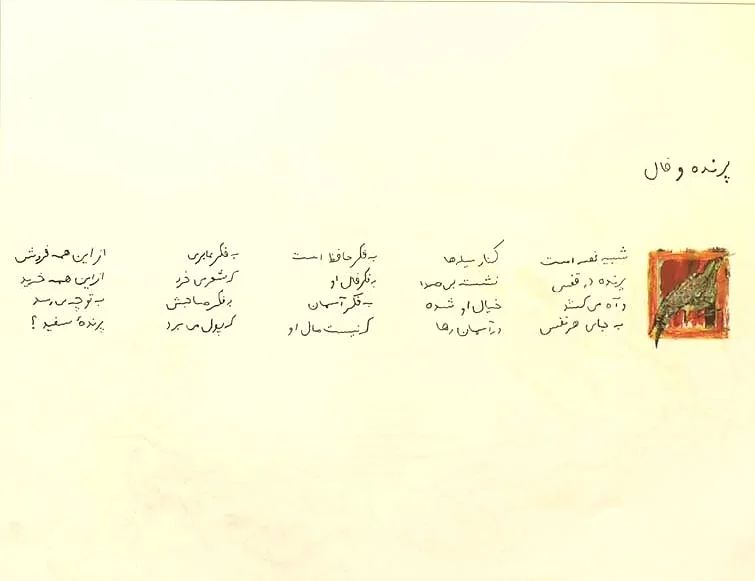 پرنده و فال
شبیه قصه است
پرنده در قفس
و آه می‌کشد
به جای هر نفس
کنار سیدها
نشست بی‌صدا
خیال او شده
در آسمان رها
به فکر حافظ است
به فکر فال او
به فکر آسمان
که نیست مال او
به فکر عابری
که شعری خرد
به فکر صاحبش
که پول می‌برد
از این همه فروش
از این همه خرید
به تو چه می‌رسد
پرندهٔ سفید؟